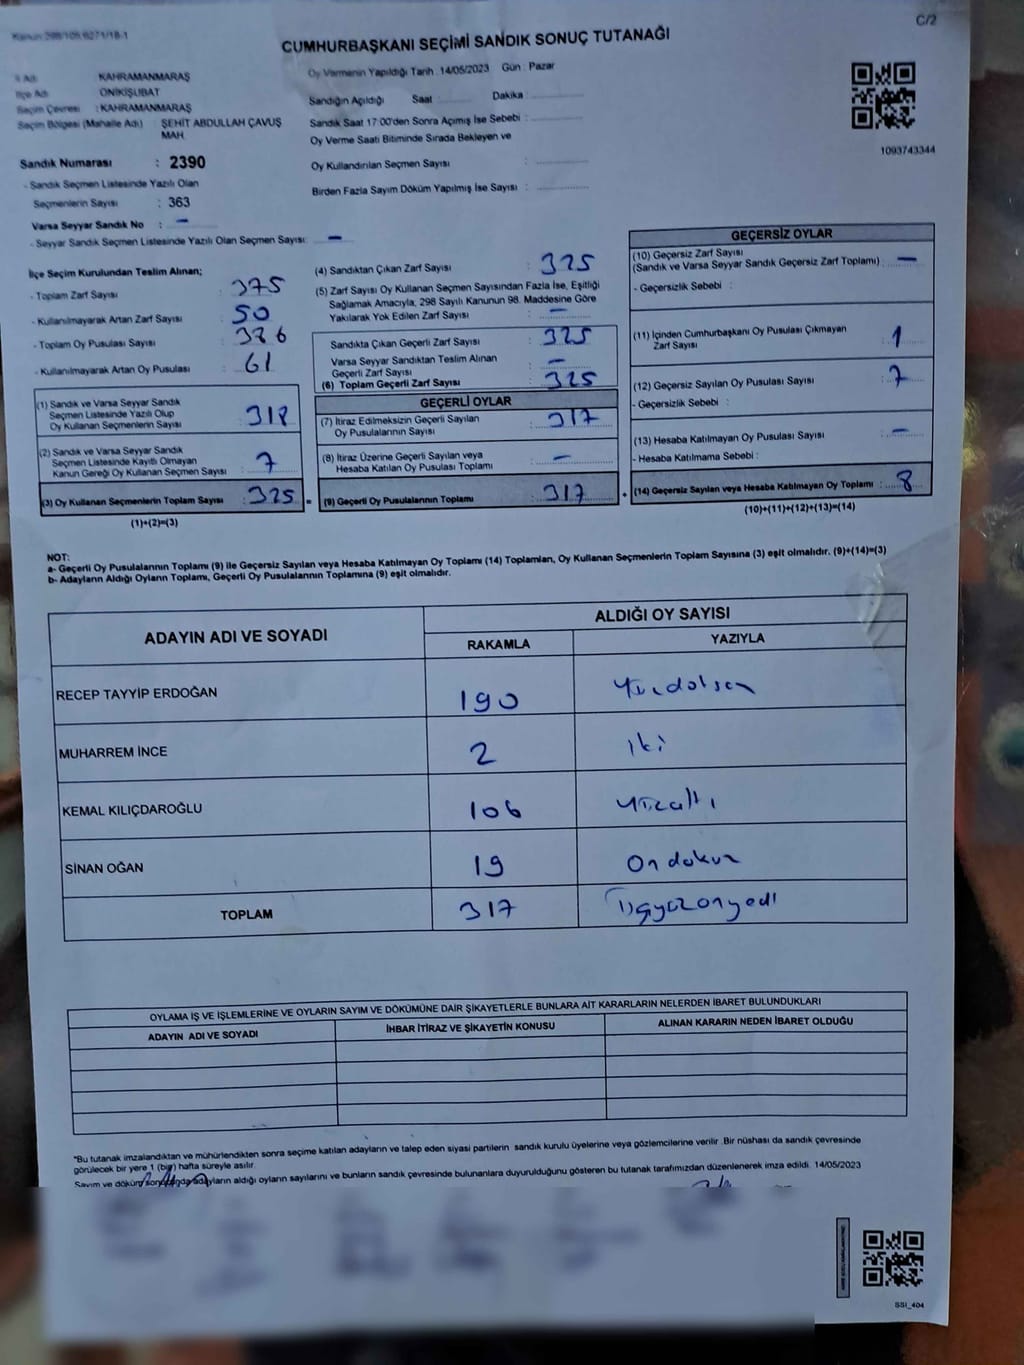 C/2
CUMHURBAŞKANI SEÇİMİ SANDIK SONUÇ TUTANAĞI
İl Adı KAHRAMANMARAŞ
İlçe Adı ONİKİŞUBAT
Seçim Çevresi : KAHRAMANMARAŞ
Seçim Bölgesi (Mahalle Adı) ŞEHİT ABDULLAH ÇAVUŞ
MAH
Sandık Numarası : 2390
- Sandık Seçmen Listesinde Yazılı Olan
Seçmenlerin Sayısı : 363
Varsa Seyyar Sandık No : -
- Seyyar Sandık Seçmen Listesinde Yazılı Olan Seçmen Sayısı: -
Oy Vermenin Yapıldığı Tarih : 14/05/2023 Gün : Pazar
Sandığın Açıldığı Saat Dakika
Sandık Saat 17:00'den Sonra Açımış İse Sebebi :
Oy Verme Saati Bitiminde Sırada Bekleyen ve
Oy Kullandırılan Seçmen Sayısı :
Birden Fazla Sayım Döküm Yapılmış İse Sayısı :
1093743344
İlçe Seçim Kurulundan Teslim Alınan;
- Toplam Zarf Sayısı : 375
- Kullanılmayarak Artan Zarf Sayısı : 50
- Toplam Oy Pusulası Sayısı : 386
- Kullanılmayarak Artan Oy Pusulası : 61
(1) Sandık ve Varsa Seyyar Sandık
Seçmen Listesinde Yazılı Olup
Oy Kullanan Seçmenlerin Sayısı : 318
(2) Sandık ve Varsa Seyyar Sandık
Seçmen Listesinde Kayıtlı Olmayan
Kanun Gereği Oy Kullanan Seçmen Sayısı : 7
(3) Oy Kullanan Seçmenlerin Toplam Sayısı : 325
(1)+(2)=(3)
(4) Sandıktan Çıkan Zarf Sayısı : 325
(5) Zarf Sayısı Oy Kullanan Seçmen Sayısından Fazla İse, Eşitliği
Sağlamak Amacıyla, 298 Sayılı Kanunun 98. Maddesine Göre
Yakılarak Yok Edilen Zarf Sayısı : -
Sandıkta Çıkan Geçerli Zarf Sayısı : 325
Varsa Seyyar Sandıktan Teslim Alınan
Geçerli Zarf Sayısı : -
(6) Toplam Geçerli Zarf Sayısı : 325
GEÇERLİ OYLAR
(7) İtiraz Edilmeksizin Geçerli Sayılan
Oy Pusulalarının Sayısı : 317
(8) İtiraz Üzerine Geçerli Sayılan veya
Hesaba Katılan Oy Pusulası Toplamı : -
= (9) Geçerli Oy Pusulalarının Toplamı : 317
GEÇERSİZ OYLAR
(10) Geçersiz Zarf Sayısı
(Sandık ve Varsa Seyyar Sandık Geçersiz Zarf Toplamı) : -
- Geçersizlik Sebebi :
(11) İçinden Cumhurbaşkanı Oy Pusulası Çıkmayan
Zarf Sayısı : 1
(12) Geçersiz Sayılan Oy Pusulası Sayısı : 7
- Geçersizlik Sebebi :
(13) Hesaba Katılmayan Oy Pusulası Sayısı : -
- Hesaba Katılmama Sebebi :
+ (14) Geçersiz Sayılan veya Hesaba Katılmayan Oy Toplamı : 8
(10)+(11)+(12)+(13)=(14)
NOT:
a- Geçerli Oy Pusulalarının Toplamı (9) ile Geçersiz Sayılan veya Hesaba Katılmayan Oy Toplamı (14) Toplamları, Oy Kullanan Seçmenlerin Toplam Sayısına (3) eşit olmalıdır. (9)+(14)=(3)
b- Adayların Aldığı Oyların Toplamı, Geçerli Oy Pusulalarının Toplamına (9) eşit olmalıdır.
ADAYIN ADI VE SOYADI
ALDIĞI OY SAYISI
RAKAMLA YAZIYLA
RECEP TAYYİP ERDOĞAN 190
MUHARREM İNCE 2 iki
KEMAL KILIÇDAROĞLU 106 Yüzaltı
SİNAN OĞAN 19 Ondokuz
TOPLAM 317 Üçyüzonyedi
OYLAMA İŞ VE İŞLEMLERİNE VE OYLARIN SAYIM VE DÖKÜMÜNE DAİR ŞİKAYETLERLE BUNLARA AİT KARARLARIN NELERDEN İBARET BULUNDUKLARI
ADAYIN ADI VE SOYADI İHBAR İTİRAZ VE ŞİKAYETİN KONUSU ALINAN KARARIN NEDEN İBARET OLDUĞU
*Bu tutanak imzalandıktan ve mühürlendikten sonra seçime katılan adayların ve talep eden siyasi partilerin sandık kurulu üyelerine veya gözlemcilerine verilir. Bir nüshası da sandık çevresinde
görülecek bir yere 1 (bir) hafta süreyle asılır.
Sayım ve döküm sonrasında adayların aldığı oyların sayılarını ve bunların sandık çevresinde bulunanlara duyurulduğunu gösteren bu tutanak tarafımızdan düzenlenerek imza edildi. 14/05/2023
SSI_404